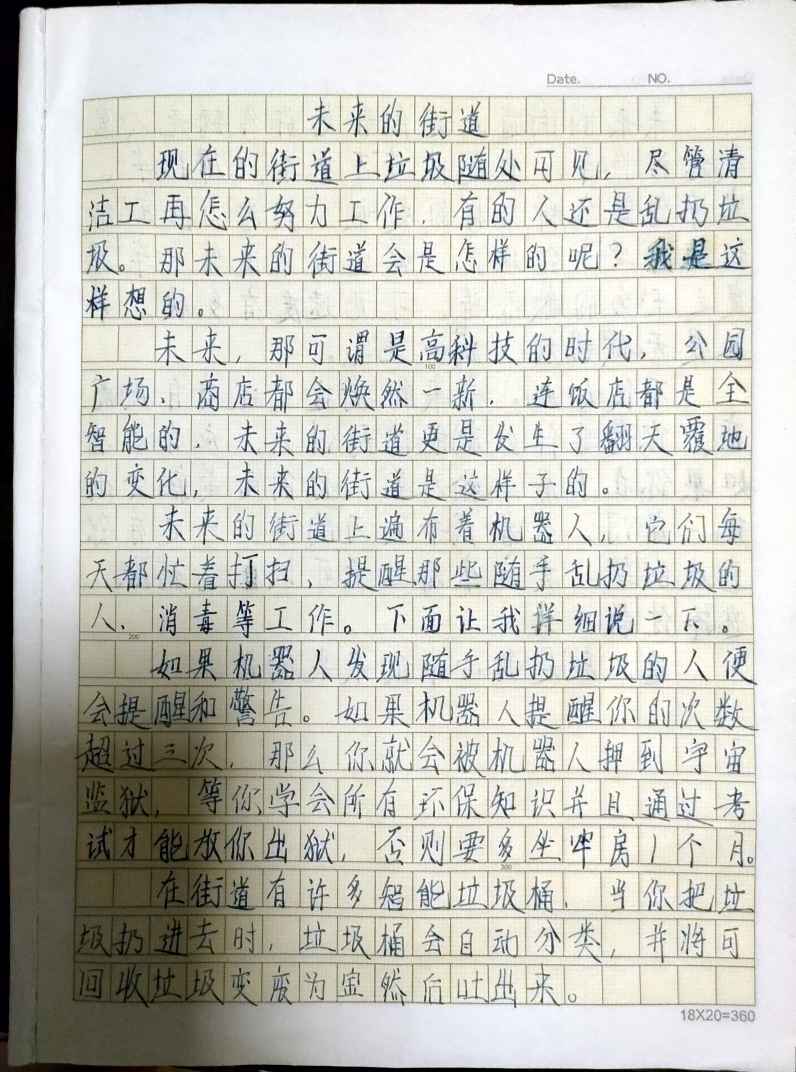 Date.
NO.
未来的街道
现在的街道上垃圾随处可见，尽管清
洁工再怎么努力工作，有的人还是乱扔垃
圾。那未来的街道会是怎样的呢？我是这
样想的。
未来，那可谓是高科技的时代，公园
100
广场、商店都会焕然一新，连饭店都是全
智能的，未来的街道更是发生了翻天覆地
的变化，未来的街道是这样子的。
未来的街道上遍布着机器人，它们每
天都忙着打扫、提醒那些随手乱扔垃圾的
人、消毒等工作。下面让我详细说一下。
200
如果机器人发现随手乱扔垃圾的人便
会提醒和警告。如果机器人提醒你的次数
超过三次，那么你就会被机器人押到宇宙
监狱，等你学会所有环保知识并且通过考
试才能放你出狱，否则要多坐牢房1个月。
300
在街道有许多智能垃圾桶，当你把垃
圾扔进去时，垃圾桶会自动分类，并将可
回收垃圾变废为宝然后吐出来。
18X20=360